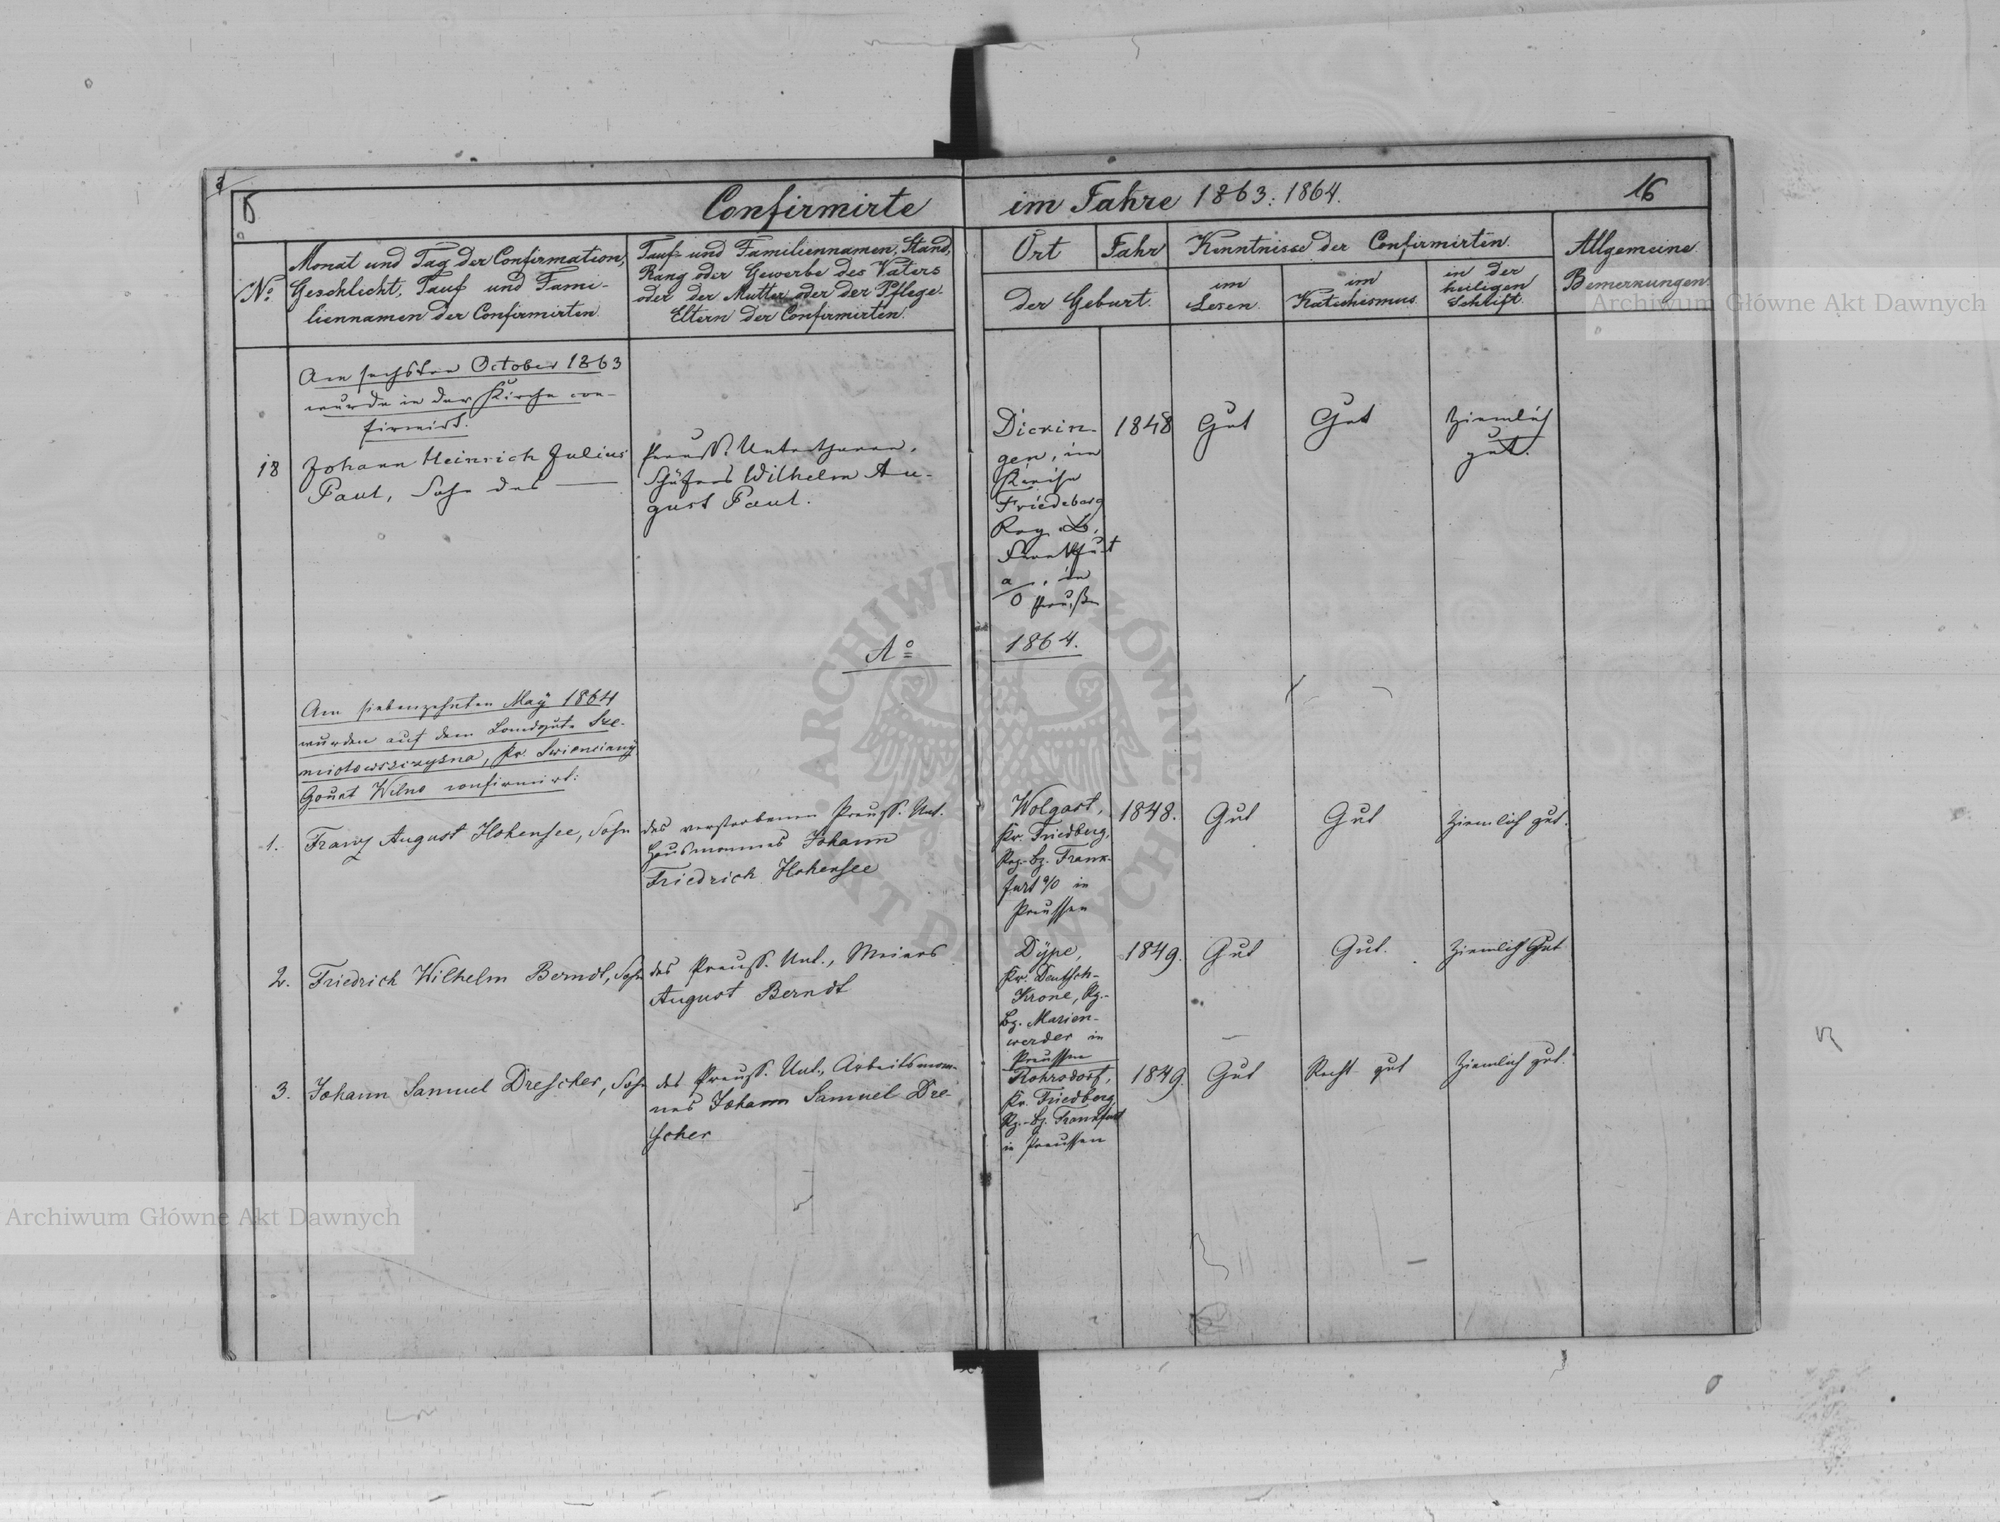 Confirmirte im Jahre 1863. 1864.
16
No
Monat und Tag der Confirmation,
Geschlecht, Tauf und Fami-
liennamen der Confirmirten.
Tauf- und Familiennamen, Stand,
Rang oder Gewerbe des Vaters
oder der Mutter oder der Pflege-
Eltern der Confirmirten.
Ort
Jahr
der Geburt.
Kenntnisse der Confirmirten.
im
Lesen.
im
Katechismus.
in der
heiligen
Schrift.
Allgemeine
Bemerkungen.
Am sechsten October 1863
wurde in der Kirche con-
firmirt:
18
Johann Heinrich Julius
Paul, Sohn des
Preuß. Unterthanen,
Schäfers Wilhelm Au-
gust Paul.
gen, im
Kreise
Friedeberg
Reg. Bz.
Frankfurt
a/O, in
Preußen
1848
Gut
Gut
Ziemlich
gut.
Ao
1864.
Am siebenzehnten May 1864
wurden auf dem Landgute Sze-
miotowszczyzna, Kr. Swienciany
Gouvt Wilno confirmirt:
1.
Franz August Hohensee, Sohn
des verstorbenen Preuss. Unt.
Hausmannes Johann
Friedrich Hohensee
Wolgast,
Kr. Friedberg,
Reg.-Bz. Frank-
furt a/O in
Preussen
1848.
Gut
Gut
Ziemlich gut.
2.
Friedrich Wilhelm Berndt, Sohn
des Preuss. Unt., Meiers
August Berndt
Dÿpe,
Kr. Deutsch-
Krone, Rg.-
Bz. Marien-
werder in
Preussen
1849.
Gut
Gut.
Ziemlich Gut
3.
Johann Samuel Drescher, Sohn
des Preuss. Unt., Arbeitsman-
nes Johann Samuel Dre-
scher
Rohrsdorf,
Kr. Friedberg
Rg.-Bz. Frankfurt
in Preussen
1849.
Gut
Recht gut
Ziemlich gut.
Archiwum Główne Akt Dawnych
Archiwum Główne Akt Dawnych
ARCHIWUM GŁÓWNE AKT DAWNYCH